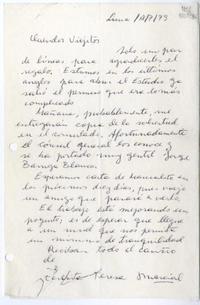 Lima
Queridos Viejitos
Solo un par
de líneas para agradecerles el
regalo. Estamos en los últimos
arreglos para abrir el Estudio ya
salió el permiso que era lo más
complicado
Mañana, probablemente, me
entregarán copia de la solicitud
en el consulado. Afortunadamente
el cónsul general los conoce y
se ha portado muy gentil Jorge
Barriga
Esperamos carta de
los próximos diez días, pues viaja
un amigo que pasará a verlo.
El trabajo está mejorando un
poquito, en espera que llegue
a un nivel que nos permita
un mínimo de tranquilidad
Reciban todo el cariño
de
Teresa Marcial